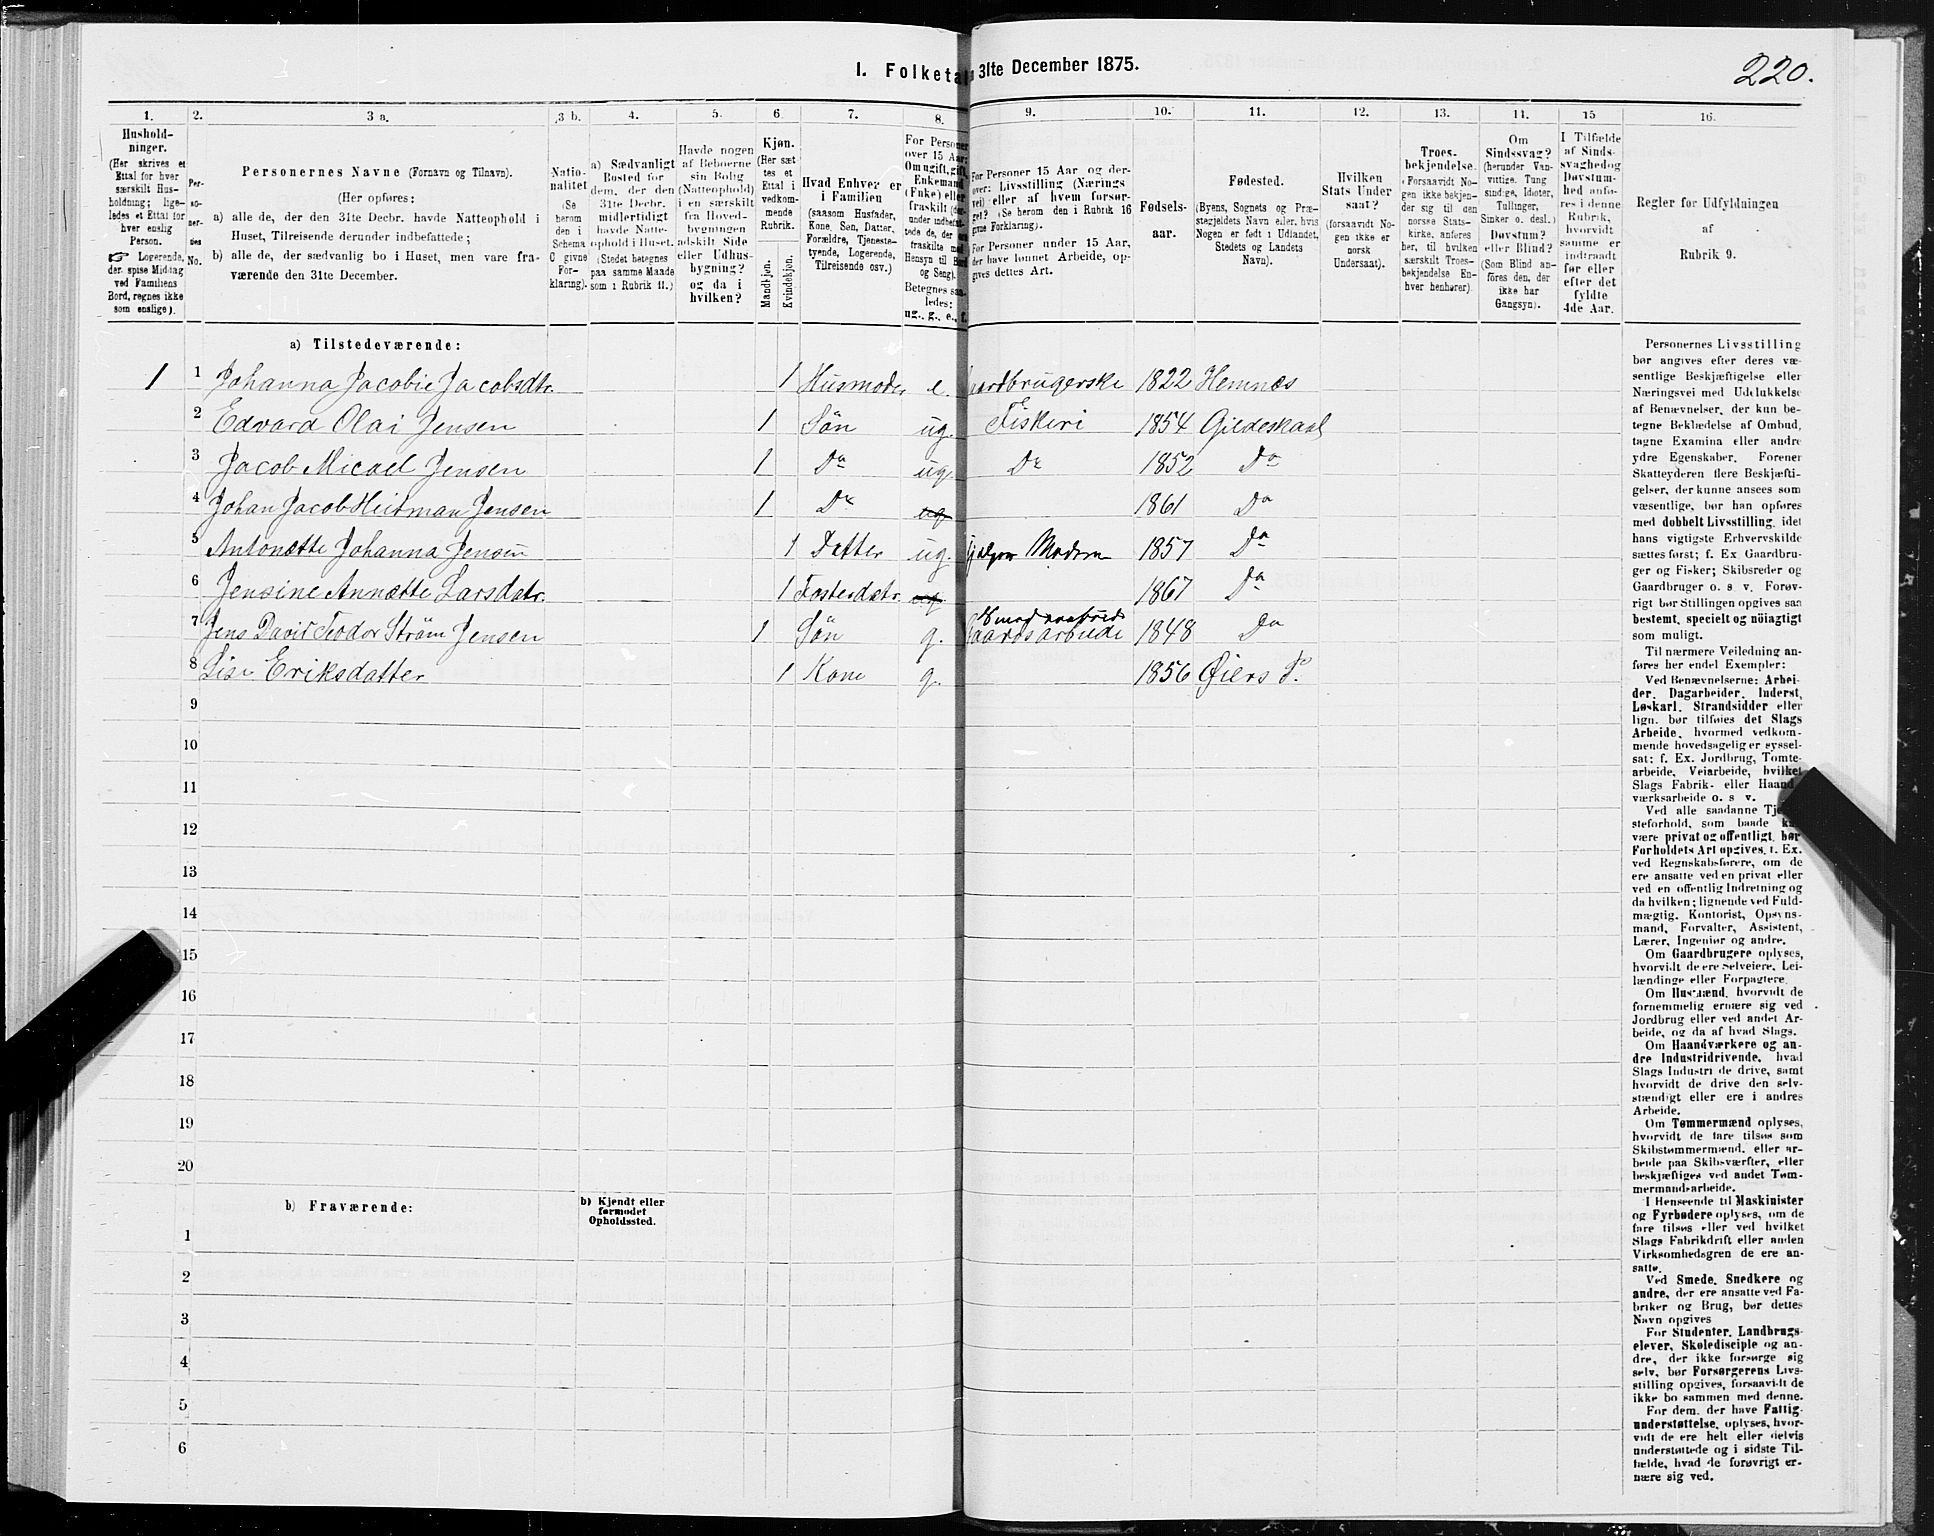 I. Folketal 31te December 1875.
220.
1.
2.
3 a.
3 b.
4.
5.
6.
7.
8.
9.
10.
11.
12.
13.
14.
15
16.
Hushold-
ninger.
(Her skrives et
Ettal for hver
særskilt Hus-
holdning; lige-
ledes et Ettal for
hver enslig
Person.
☞ Logerende,
der spise Middag
ved Familiens
Bord, regnes ikke
som enslige).
Per-
so-
ner-
nes
No.
Personernes Navne (Fornavn og Tilnavn).
(Her opføres:
a) alle de, der den 31te Decbr. havde Natteophold i
Huset, Tilreisende derunder indbefattede;
b) alle de, der sædvanlig bo i Huset, men vare fra-
værende den 31te December.
Natio-
nalitet
(Se
herom
den i
Schema
C givne
For-
klaring).
a) Sædvanligt
Bosted for
dem, der den
31te Decbr.
midlertidigt
havde Natte-
ophold i Huset.
(Stedet betegnes
paa samme Maade
som i Rubrik 11.)
Havde nogen
af Beboerne
sin Bolig
(Natteophold)
i en særskilt
fra Hoved-
bygningen
adskilt Side
eller Udhus-
bygning?
og da i
hvilken?
Kjøn.
(Her sæt
tes et
Ettal i
vedkom-
mende
Rubrik.
Mandkjøn.
Kvindekjøn.
Hvad Enhver er
i Familien
(saasom Husfader,
Kone, Søn, Datter,
Forældre, Tjeneste-
tyende, Logerende,
Tilreisende osv.)
For Personer
over 15 Aar:
Om ugift, gift,
Enkemand
(Enke) eller
fraskilt (der-
under indbefat-
tede de, der ere
fraskilte med
Hensyn til Bord
og Seng).
Betegnes saa-
ledes:
ug., g., e., f.
For Personer 15 Aar og der-
over: Livsstilling (Nærings
vei) eller af hvem forsør-
get? (Se herom den i Rubrik 16
givne Forklaring).
For Personer under 15 Aar,
der have lønnet Arbeide, op-
gives dettes Art.
Fødsels-
aar.
Fødested.
(Byens, Sognets og Præ-
stegjeldets Navn eller, hvis
Nogen er født i Udlandet,
Stedets og Landets
Navn).
Hvilken
Stats Under
saat?
(forsaavidt No-
gen ikke er
norsk
Undersaat).
Troes-
bekjendelse.
(Forsaavidt No-
gen ikke bekjen-
der sig til den
norske Stats-
kirke, anføres
her, til hvilken
særskilt Troes-
bekjendelse En-
hver henhører).
Om
Sindssvag?
(herunder Van-
vittige, Tung
sindige, Idioter,
Tullinger,
Sinker o. desl.)
Døvstum?
eller Blind?
(Som Blind an-
føres den, der
ikke har
Gangsyn).
I Tilfælde
af Sinds-
svaghed og
Døvstum-
hed anfø-
res i denne
Rubrik,
hvorvidt
samme er
indtraadt
før eller
efter det
fyldte
4de Aar.
Regler for Udfyldningen
af
Rubrik 9.
a) Tilstedeværende:
1 1 Johanna Jacobie Jacobsdtr. 1 Husmoder e. Gaardbrugerske 1822 Hemnæs
2 Edvard Olai Jensen 1 Søn ug. Fiskeri 1854 Gildeskaal
3 Jacob Micael Jensen 1 Do ug. Do 1852 Do
4 Johan Jacob Heitman Jensen 1 Do ug. 1861 Do
5 Antonætte Johanna Jensen 1 Datter ug. hjelper Modern 1857 Do
6 Jensine Annætte Larsdatr. 1 Fosterdatr. ug. 1867 Do
7 Jens David Teodor Strøm Jensen 1 Søn g. Gaardsarbeide 1848 Do
8 Lise Eriksdatter 1 Kone g. 1856 Øiers P.
9
10
11
12
13
14
15
16
17
18
19
20
b) Fraværende:
b) Kjendt eller
formodet
Opholdssted.
1
2
3
4
5
6
Personernes Livsstilling
bør angives efter deres væ-
sentlige Beskjæftigelse eller
Næringsvei med Udelukkelse
af Benævnelser, der kun be-
tegne Beklædelse af Ombud,
tagne Examina eller andre
ydre Egenskaber. Forener
Skatteyderen flere Beskjæfti-
gelser, der kunne ansees som
væsentlige, bør han opføres
med dobbelt Livsstilling, idet
hans vigtigste Erhvervskilde
sættes først; f. Ex Gaardbru-
ger og Fisker; Skibsreder og
Gaardbruger o. s. v. Forøv-
rigt bør Stillingen opgives saa
bestemt, specielt og nöiagtigt
som muligt.
Til nærmere Veiledning an-
føres her endel Exempler:
Ved Benævnelserne: Arbei-
der, Dagarbeider, Inderst,
Løskarl, Strandsidder eller
lign. bør tilføies det Slags
Arbeide, hvormed vedkom-
mende hovedsagelig er syssel-
sat; f. Ex. Jordbrug, Tomte-
arbeide, Veiarbeide, hvilket
Slags Fabrik- eller Haand-
værksarbeide o. s. v.
Ved alle saadanne Tje-
steforhold, som baade kan
være privat og offentligt, bør
Forholdets Art opgives, f. Ex.
ved Regnskabsførere, om de
ere ansatte ved en privat eller
ved en offentlig Indretning og
da hvilken; lignende ved Fuld-
mægtig, Kontorist, Opsyns-
mand, Forvalter, Assistent,
Lærer, Ingeniør og andre.
Om Gaardbrugere oplyses,
hvorvidt de ere Selveiere, Lei-
lændinge eller Forpagtere.
Om Husmænd, hvorvidt de
fornemmelig ernære sig ved
Jordbrug eller ved andet Ar-
beide, og da af hvad Slags.
Om Haandværkere og an-
dre Industridrivende, hvad
Slags Industri de drive, samt
hvorvidt de drive den selv-
stændigt eller ere i andres
Arbeide.
Om Tømmermænd oplyses,
hvorvidt de fare tilsøs som
Skibstømmermænd, eller ar-
beide paa Skibsværfter, eller
beskjæftiges ved andet Tøm-
mermandsarbeide.
I Henseende til Maskinister
og Fyrbødere oplyses, om de
fare tilsøs eller ved hvilket
Slags Fabrikdrift eller anden
Virksomhedsgren de ere an-
satte.
Ved Smede, Snedkere og
andre, der ere ansatte ved Fa-
briker og Brug, bør dettes
Navn opgives
For Studenter, Landbrugs-
elever, Skoledisciple og an-
dre, der ikke forsørge sig
selv, bør Forsørgerens Livs-
stilling opgives, forsaavidt de
ikke bo sammen med denne.
For dem, der have Fattig-
understøttelse, oplyses, hvor-
vidt de ere helt eller delvis
understøttede og i sidste Til-
fælde, hvad de forøvrigt er-
nære sig ved.